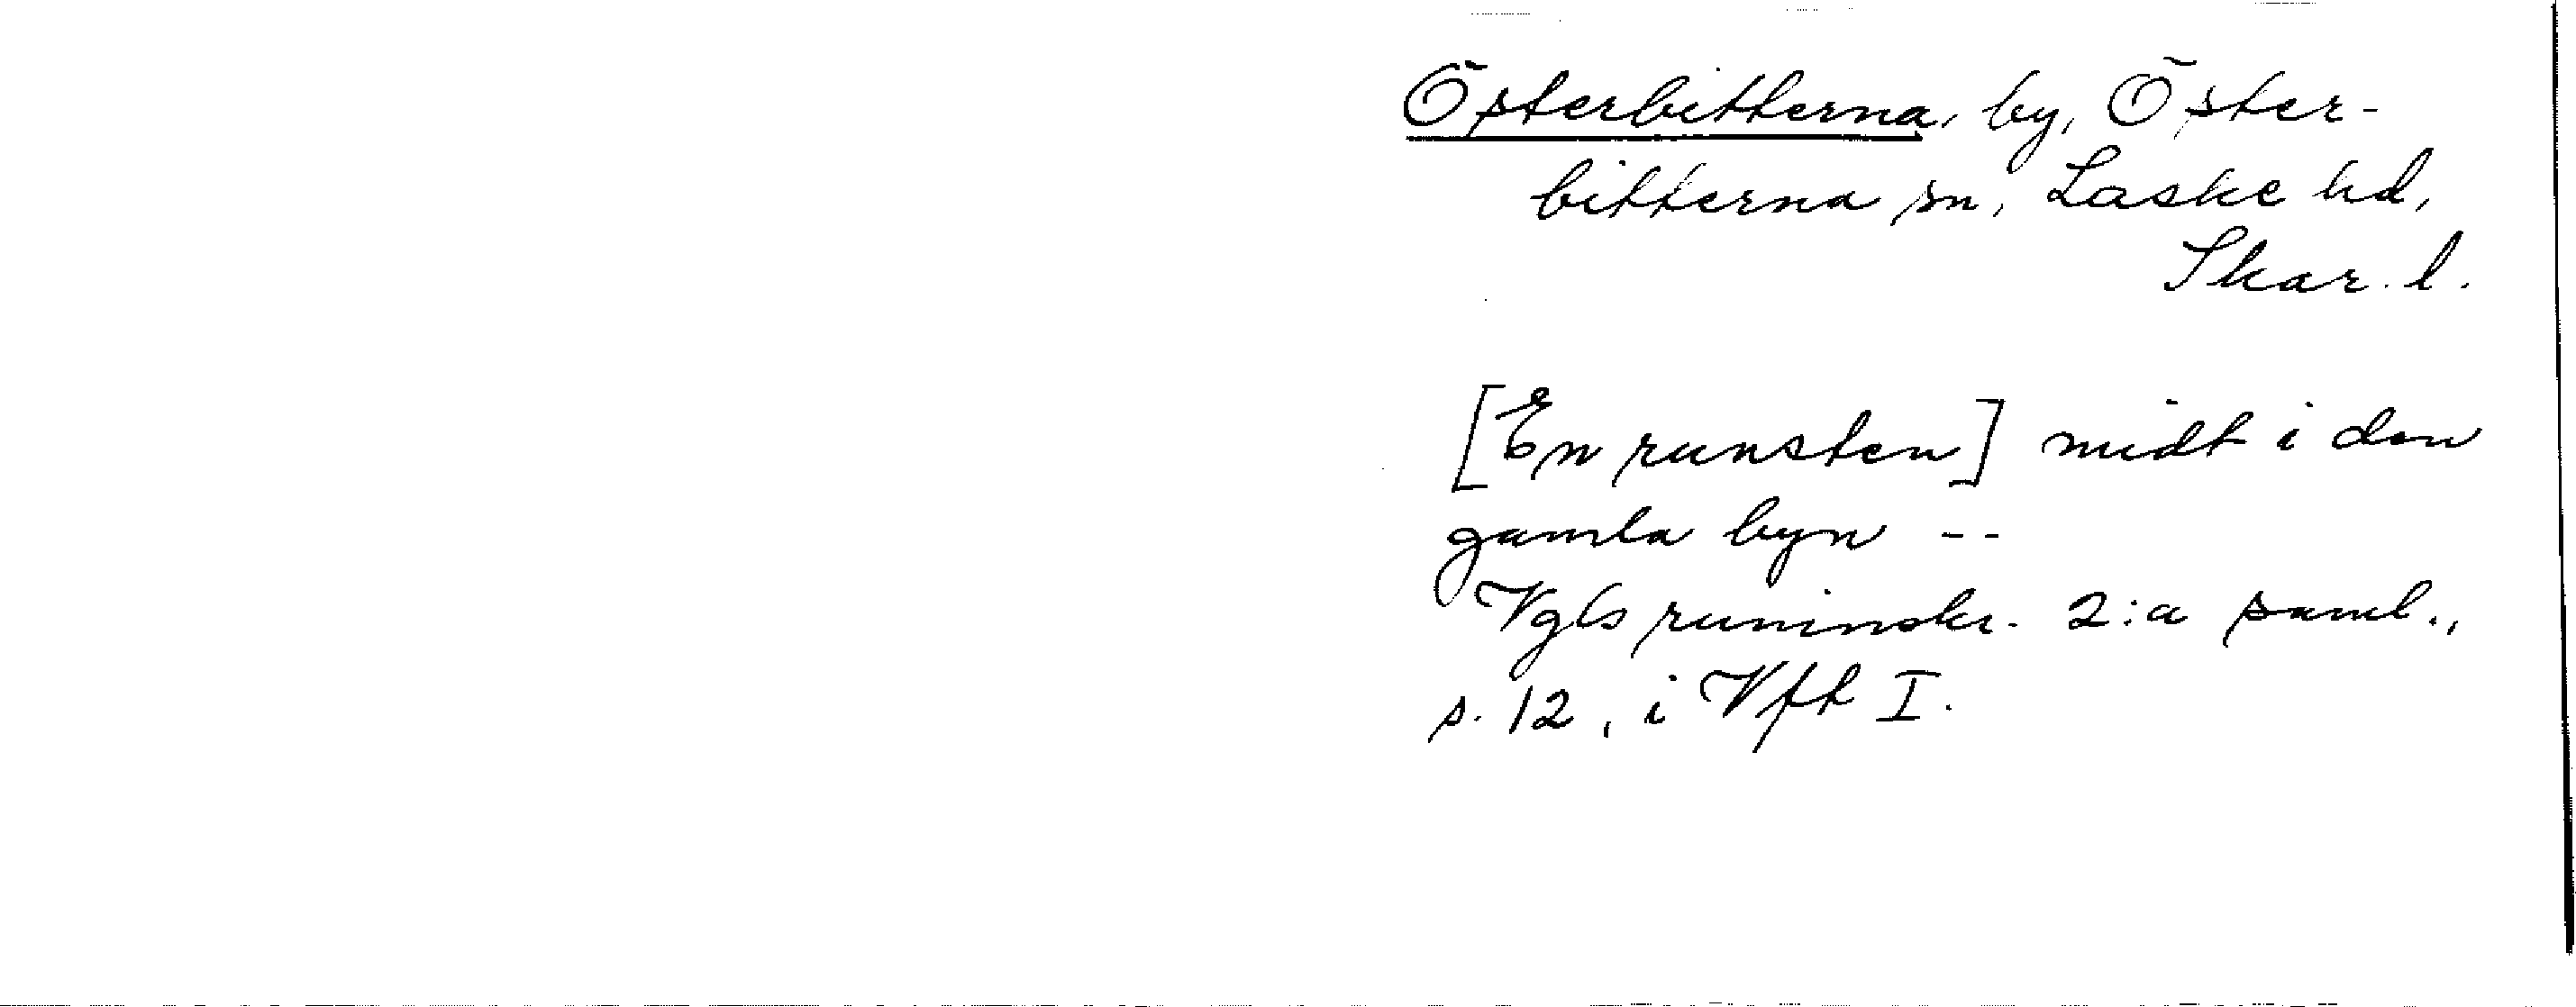 Österbitterna, by, Öster-
bitterna sn, Laske hd,
Skar. l.
[En runsten] midt i den
gamla byn --
Vgls runinskr. 2:a saml.,
s. 12, i Vft I.